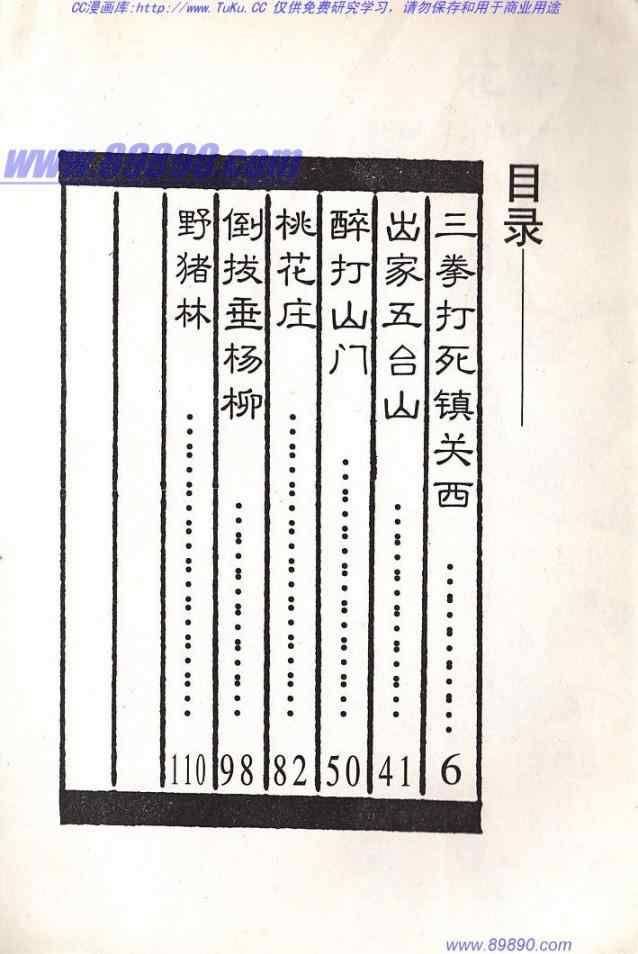 CC漫画库:http://www.TuKu.CC 仅供免费研究学习，请勿保存和用于商业用途
www.89890.com
目录
三拳打死镇关西……………6
出家五台山……………41
醉打山门……………50
桃花庄……………82
倒拔垂杨柳……………98
野猪林……………110
www.89890.com